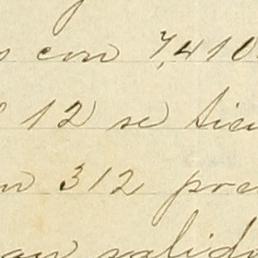 s con 7,410
12 se tien
n 312 pre
an valido